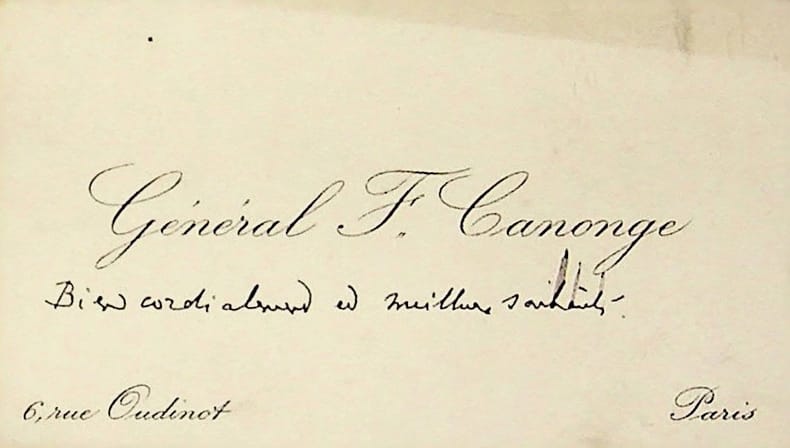 Général F. Canonge
Bien cordialement et meilleurs souhaits.
6, rue Oudinot
Paris